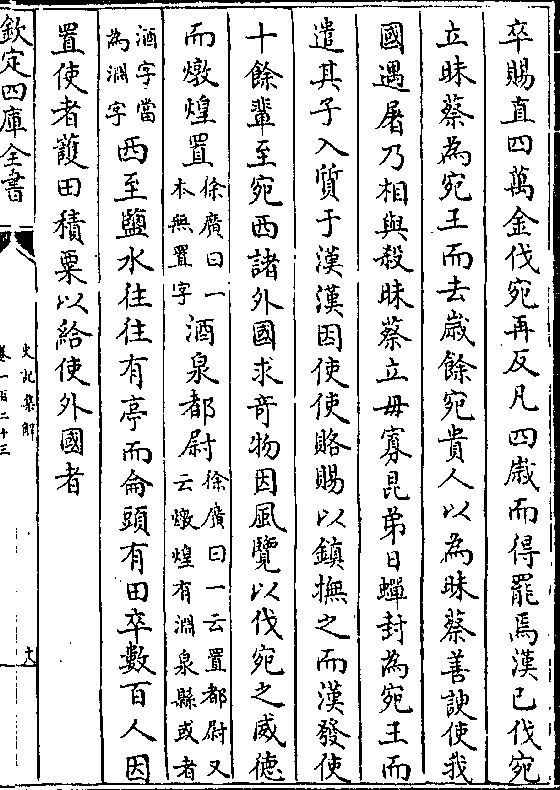 卒賜直四萬金伐宛再反凡四歲而得罷焉漢已伐宛
立昧蔡為宛王而去歲餘宛貴人以為昧蔡善諛使我
國遇屠乃相與殺昧蔡立毋寡昆弟曰蟬封為宛王而
遣其子入質于漢漢因使使賂賜以鎮撫之而漢發使
十餘輩至宛西諸外國求竒物因風覽以伐宛之威德
而燉煌置徐廣曰一本無置字酒泉都尉徐廣曰一云置都尉又云燉煌有淵泉縣或者
酒字當為淵字西至鹽水往往有亭而侖頭有田卒數百人因
置使者䕶田積粟以給使外國者
欽定四庫全書
史記集解
卷一百二十三